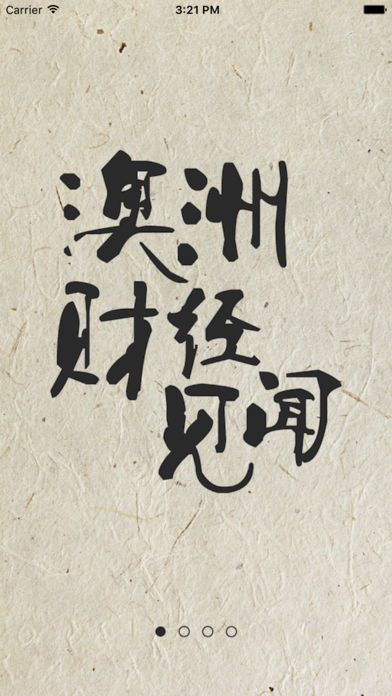 Carrier 3:21 PM
澳洲
财经
见闻